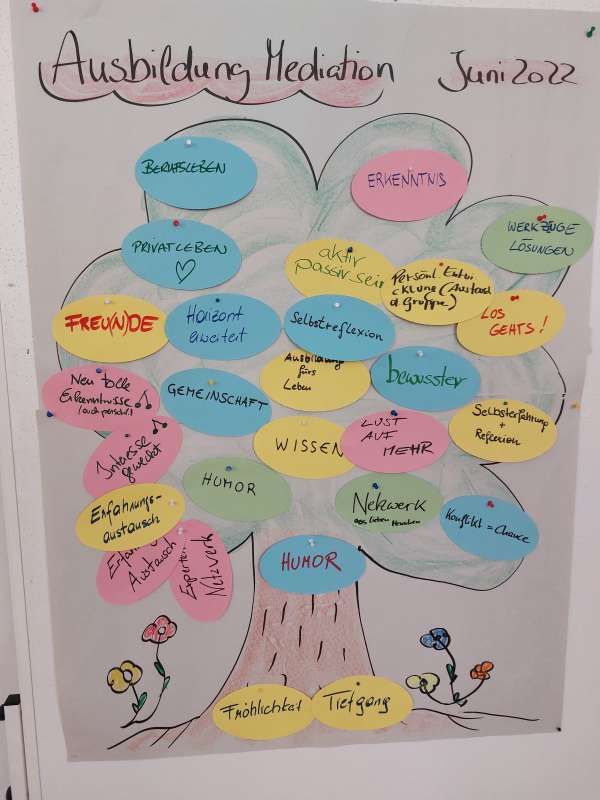 Ausbildung Mediation Juni 2022
BERUFSLEBEN
ERKENNTNIS
WERKZEUGE
LÖSUNGEN
PRIVATLEBEN
aktiv
passiv sein
Persönl. Entwi
cklung (Austausch
d Gruppe)
FREU(N)DE
Horizont
erweitert
Selbstreflexion
LOS
GEHTS!
Ausbildung
fürs
Leben
bewusster
Neu tolle
Erkenntnisse
/auch persönl.
GEMEINSCHAFT
Selbsterfahrung
+
Reflexion
Interesse
geweckt
WISSEN
LUST
AUF
MEHR
HUMOR
Netzwerk
lieben Menschen
Erfahrungs-
austausch
Konflikt = Chance
Austausch
Experten
Netzwerk
HUMOR
Fröhlichkeit
Tiefgang